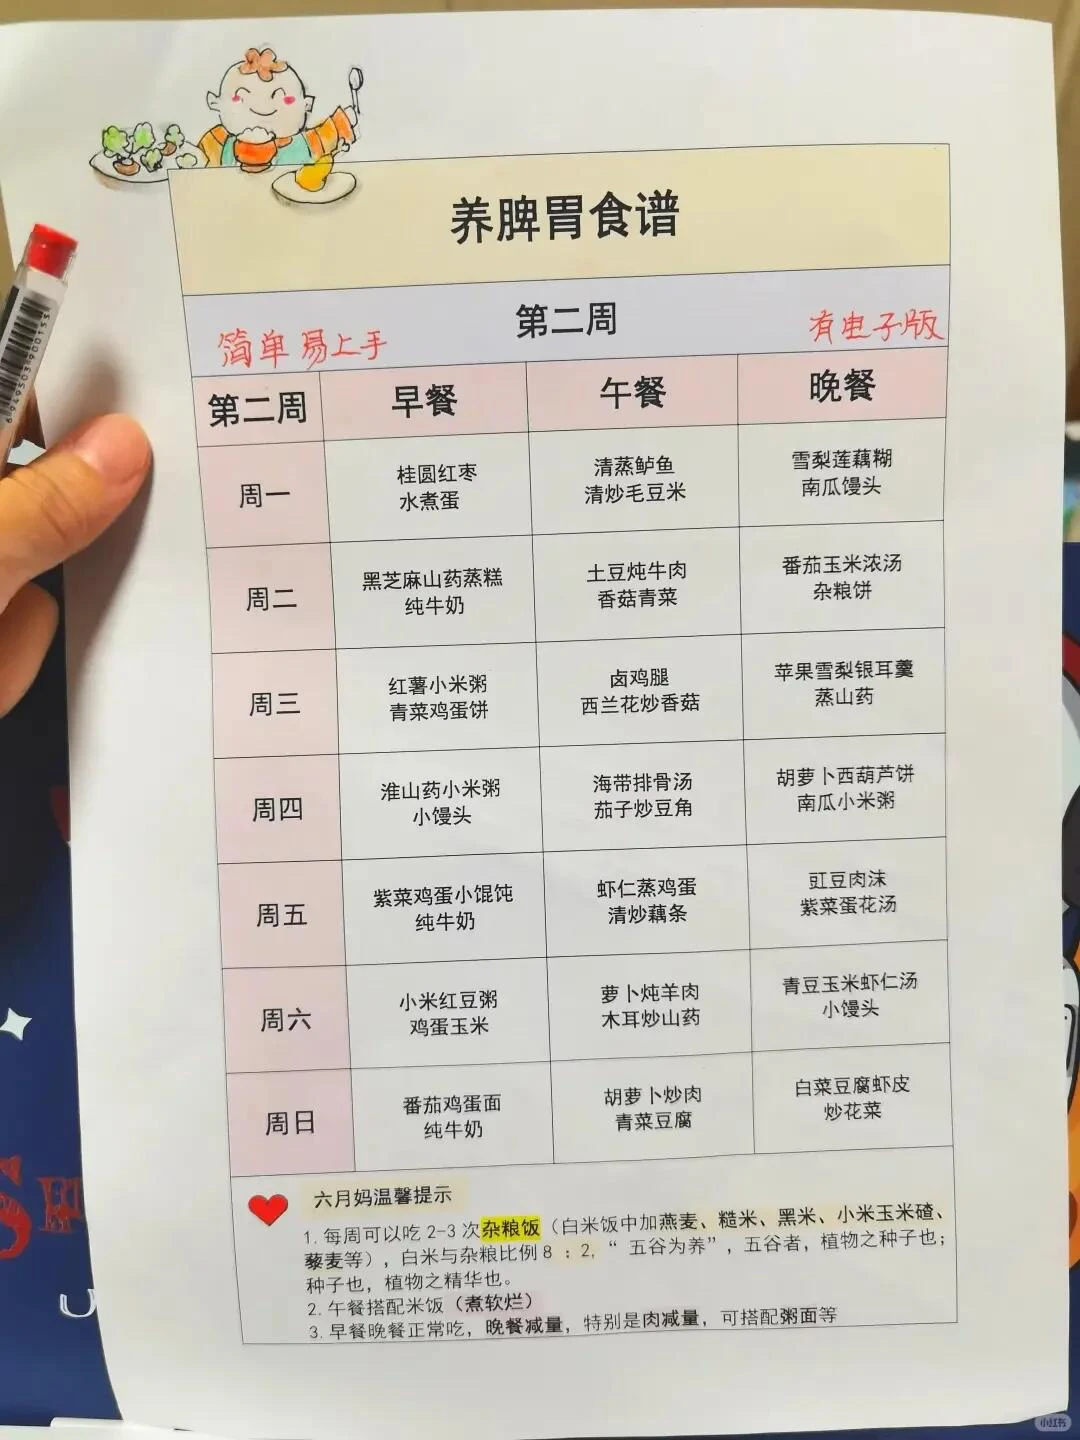 养脾胃食谱
第二周
简单易上手
有电子版
第二周 早餐 午餐 晚餐
周一
桂圆红枣
水煮蛋
清蒸鲈鱼
清炒毛豆米
雪梨莲藕糊
南瓜馒头
周二
黑芝麻山药蒸糕
纯牛奶
土豆炖牛肉
香菇青菜
番茄玉米浓汤
杂粮饼
周三
红薯小米粥
青菜鸡蛋饼
卤鸡腿
西兰花炒香菇
苹果雪梨银耳羹
蒸山药
周四
淮山药小米粥
小馒头
海带排骨汤
茄子炒豆角
胡萝卜西葫芦饼
南瓜小米粥
周五
紫菜鸡蛋小馄饨
纯牛奶
虾仁蒸鸡蛋
清炒藕条
豇豆肉沫
紫菜蛋花汤
周六
小米红豆粥
鸡蛋玉米
萝卜炖羊肉
木耳炒山药
青豆玉米虾仁汤
小馒头
周日
番茄鸡蛋面
纯牛奶
胡萝卜炒肉
青菜豆腐
白菜豆腐虾皮
炒花菜
六月妈温馨提示
1. 每周可以吃 2-3 次杂粮饭（白米饭中加燕麦、糙米、黑米、小米玉米碴、
藜麦等），白米与杂粮比例 8 ：2,“ 五谷为养”，五谷者，植物之种子也；
种子也，植物之精华也。
2. 午餐搭配米饭（煮软烂）
3. 早餐晚餐正常吃，晚餐减量，特别是肉减量，可搭配粥面等
6949303900155
小红书